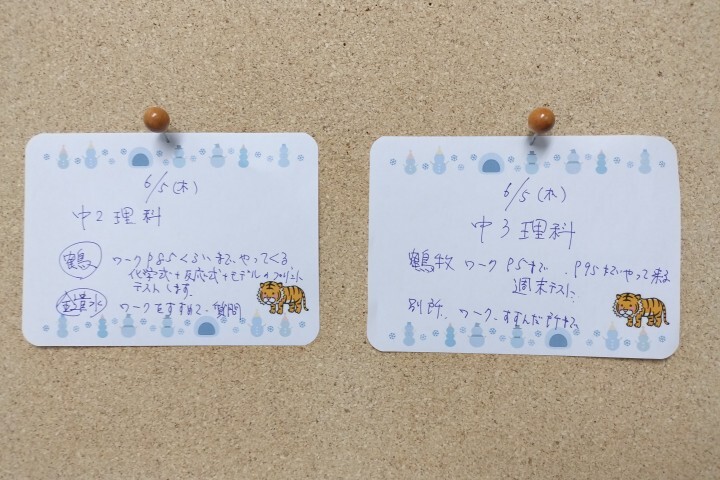 6/5(木)
中2理科
鶴 ワークP85くらいまでやってくる
化学式+反応式+モデルのプリント
テストします。
ワークをすすめて、質問
6/5(木)
中3理科
鶴牧 ワークP5まで、P95までやって来る
週末テスト
別所、ワーク、すすんだ所まで